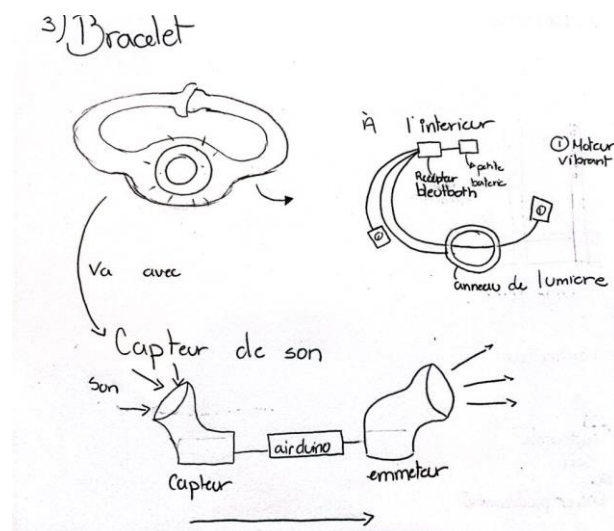 3) Bracelet
À l'interieur
① Moteur
vibrant
Recepteur
bleutboth
petite
baterie
①
①
anneau de lumiere
Va avec
Capteur de son
Son
airduino
Capteur
emmeteur